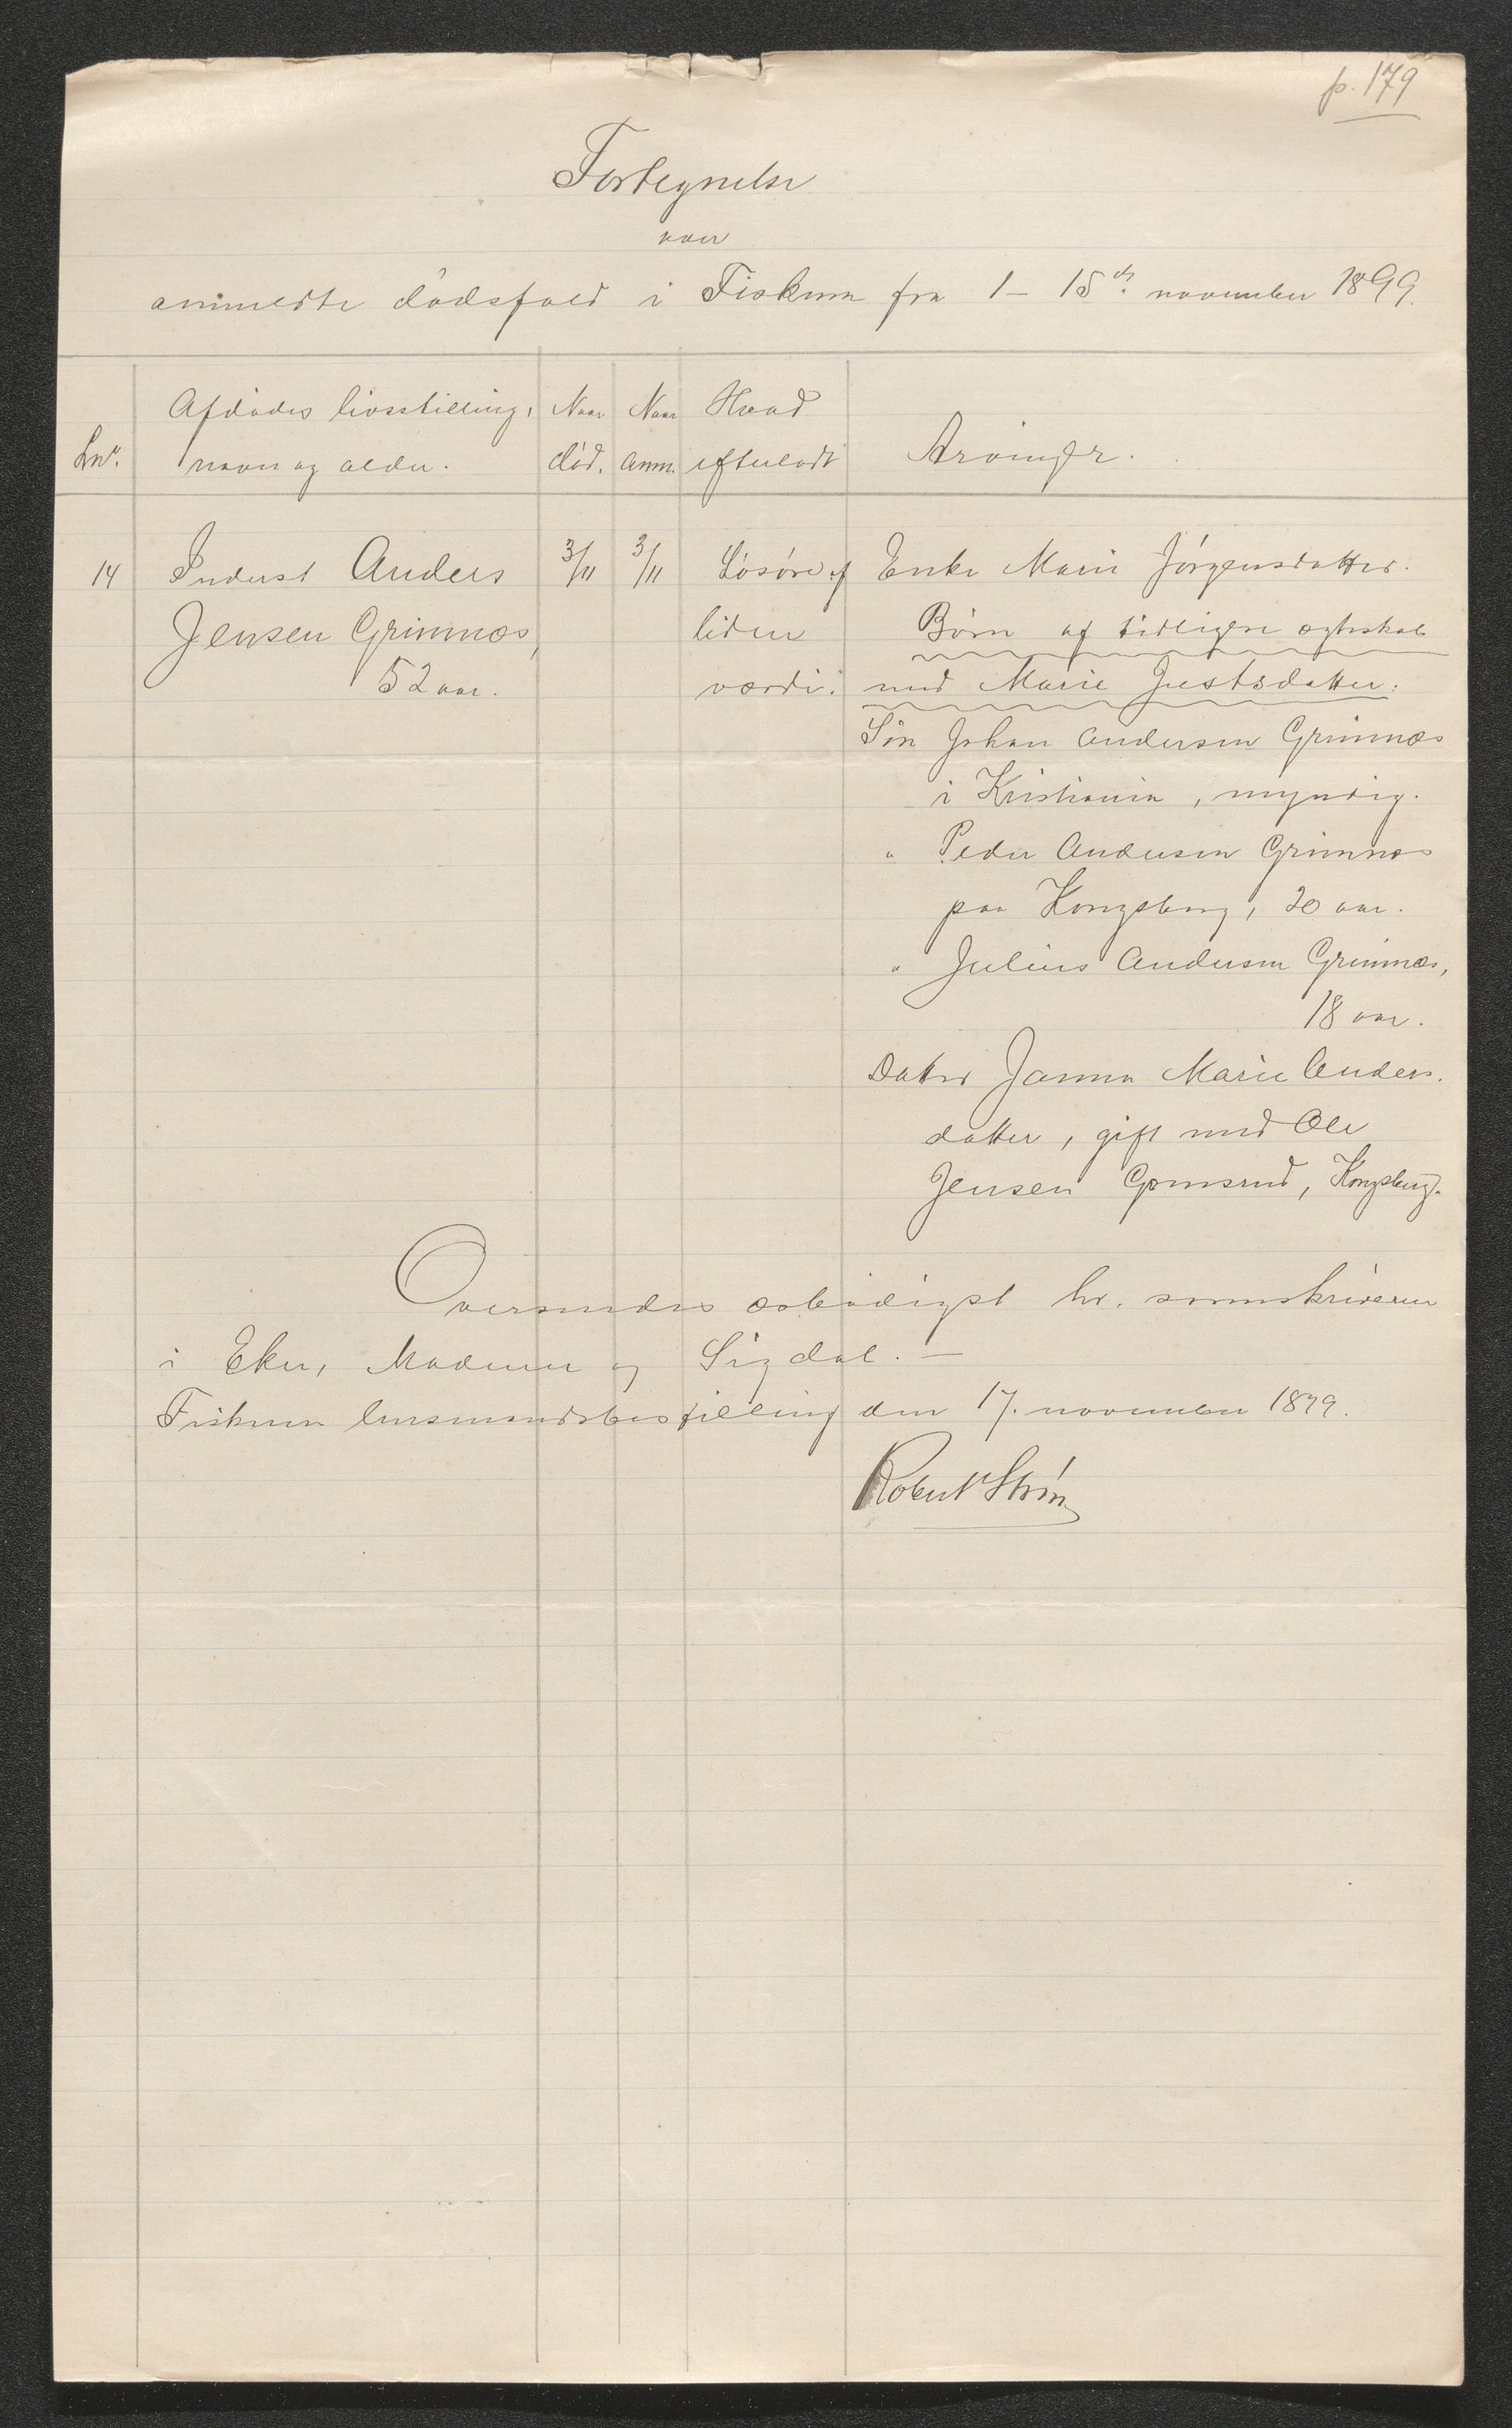 p. 179
Fortegnelse
over
anmeldte dödsfald i Fiskum fra 1 – 15de november 1899.
Lnr. Afdödes livsstilling, navn og alder. Naar död. Naar anm. Hvad efterladt Arvinger.
14 Inderst Anders 3/11 3/11 Lösöre af Enke Marie Jörgensdatter.
Jensen Grimnæs, liden Börn af tidligere ægteskab
52 aar. værdi. med Marie Justsdatter:
Sön Johan Andersen Grimnæs
i Kristiania, myndig.
" Peder Andersen Grimnæs
paa Kongsberg, 20 aar.
" Julius Andersen Grimnæs,
18 aar.
Datter Janna Marie Anders-
datter, gift med Ole
Jensen Gomsrud, Kongsberg.
Oversendes ærbödigst hr. sorenskriveren
i Eker, Modum og Sigdal. –
Fiskum lensmandsbestilling den 17. november 1899.
Robert Ström